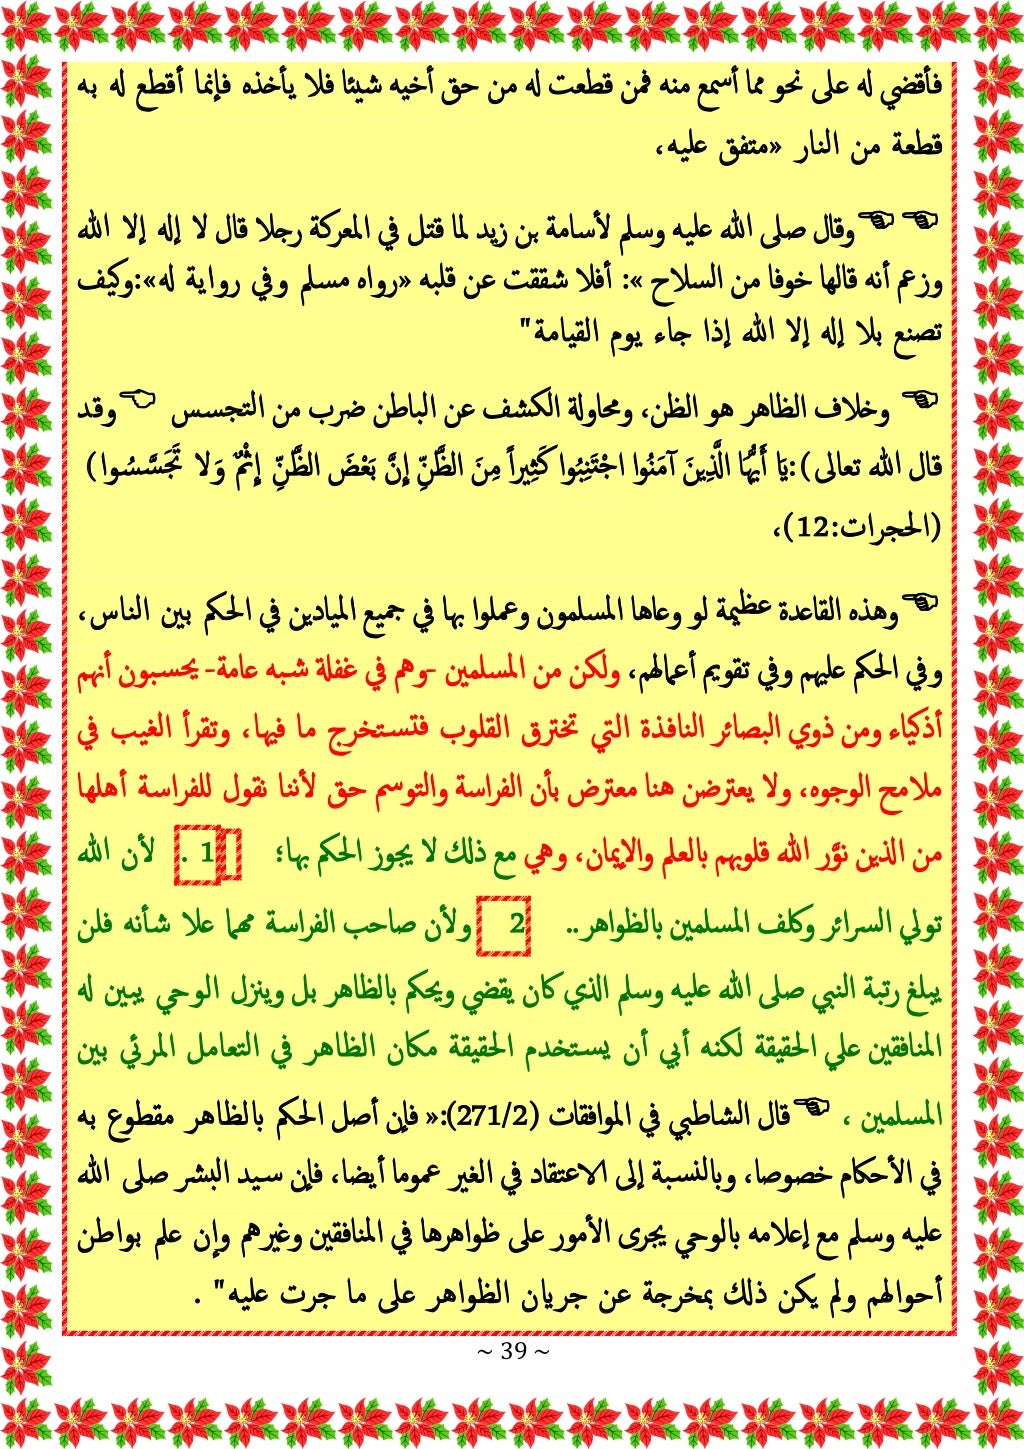 فأقضي له على نحو مما أسمع منه فمن قطعت له من حق أخيه شيئا فلا يأخذه فإنما أقطع له به
قطعة من النار «متفق عليه،
☜☜وقال صلى الله عليه وسلم لأسامة بن زيد لما قتل في المعركة رجلا قال لا إله إلا الله
وزعم أنه قالها خوفا من السلاح »: أفلا شققت عن قلبه «رواه مسلم وفي رواية له»:وكيف
تصنع بلا إله إلا الله إذا جاء يوم القيامة"
☜ وخلاف الظاهر هو الظن، ومحاولة الكشف عن الباطن ضرب من التجسس ☜وقد
قال الله تعالى):يَا أَيُّهَا الَّذِينَ آمَنُوا اجْتَنِبُوا كَثِيراً مِنَ الظَّنِّ إِنَّ بَعْضَ الظَّنِّ إِثْمٌ وَلا تَجَسَّسُوا)
(الحجرات:12)،
☜وهذه القاعدة عظيمة لو وعاها المسلمون وعملوا بها في جميع الميادين في الحكم بين الناس،
وفي الحكم عليهم وفي تقويم أعمالهم، ولكن من المسلمين -وهم في غفلة شبه عامة- يحسبون أنهم
أذكياء ومن ذوي البصائر النافذة التي تخترق القلوب فتستخرج ما فيها، وتقرأ الغيب في
ملامح الوجوه، ولا يعترضن هنا معترض بأن الفراسة والتوسم حق لأننا نقول للفراسة أهلها
من الذين نوَّر الله قلوبهم بالعلم والإيمان، وهي مع ذلك لا يجوز الحكم بها؛ 1 . لأن الله
تولي السرائر وكلف المسلمين بالظواهر.. 2 ولأن صاحب الفراسة مهما علا شأنه فلن
يبلغ رتبة النبي صلى الله عليه وسلم الذي كان يقضي ويحكم بالظاهر بل وينزل الوحي يبين له
المنافقين علي الحقيقة لكنه أبي أن يستخدم الحقيقة مكان الظاهر في التعامل المرئي بين
المسلمين ، ☜قال الشاطبي في الموافقات (271/2):« فإن أصل الحكم بالظاهر مقطوع به
في الأحكام خصوصا، وبالنسبة إلى الاعتقاد في الغير عموما أيضا، فإن سيد البشر صلى الله
عليه وسلم مع إعلامه بالوحي يجرى الأمور على ظواهرها في المنافقين وغيرهم وإن علم بواطن
أحوالهم ولم يكن ذلك بمخرجة عن جريان الظواهر على ما جرت عليه" .
~ 39 ~